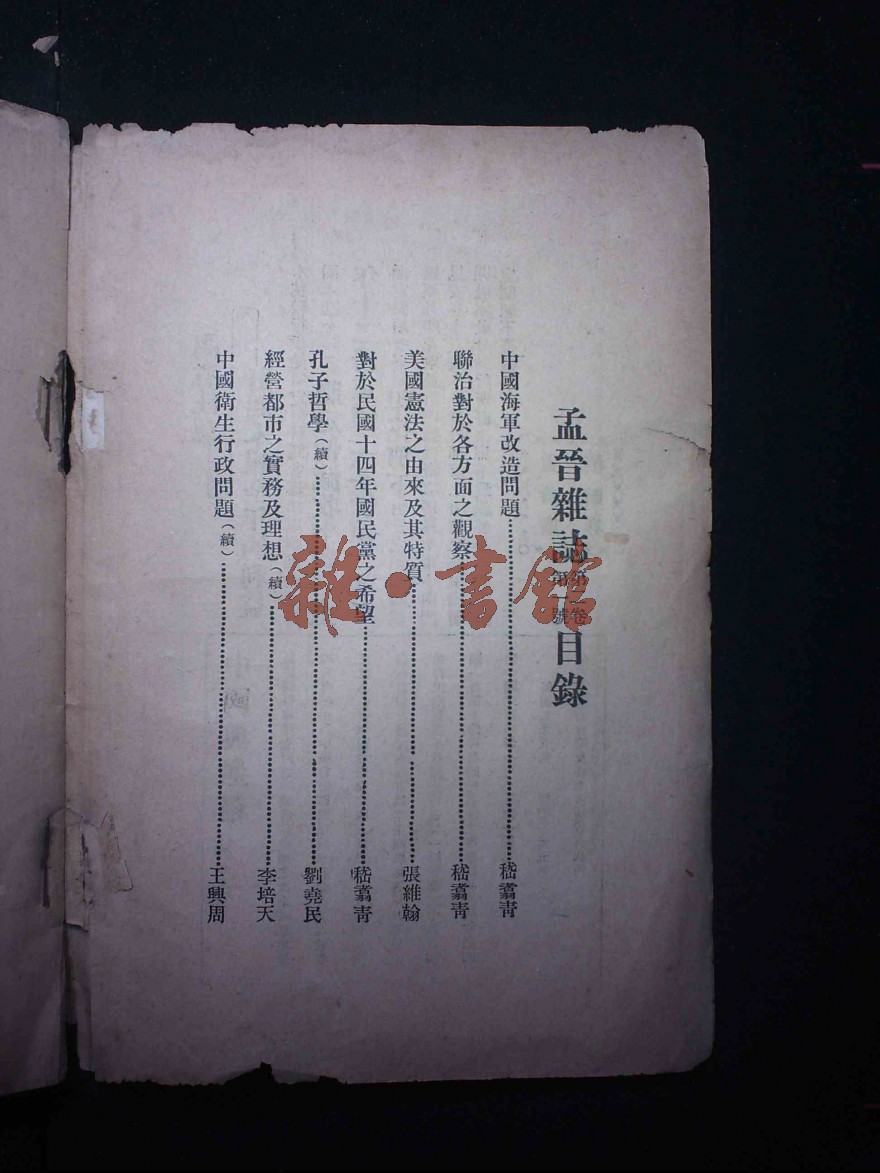 孟晉雜誌 第二卷 第一號 目錄
中國海軍改造問題……嵇翥靑
聯治對於各方面之觀察……嵇翥靑
美國憲法之由來及其特質……張維翰
對於民國十四年國民黨之希望……嵇翥靑
孔子哲學(續)……劉堯民
經營都市之實務及理想(續)……李培天
中國衛生行政問題(續)……王興周
雜·書館